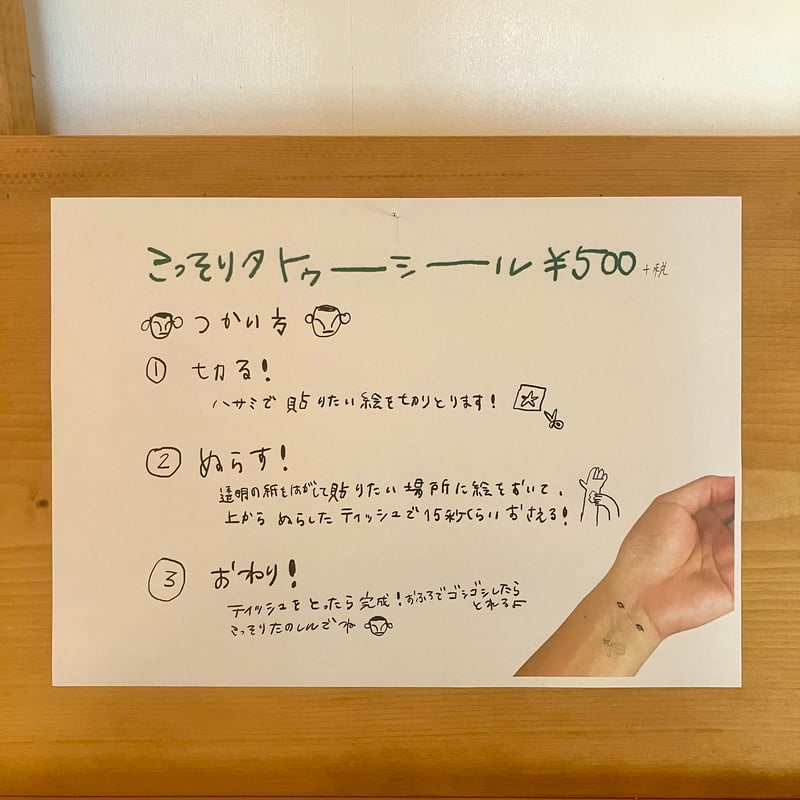 こっそりタトゥーシール ¥500 +税
つかい方
① 切る!
ハサミで貼りたい絵を切りとります!
② ぬらす!
透明の紙をはがして貼りたい場所に絵をおいて、
上からぬらしたティッシュで15秒くらいおさえる!
③ おわり!
ティッシュをとったら完成!おふろでゴシゴシしたら
とれるよ
こっそりたのしんでね